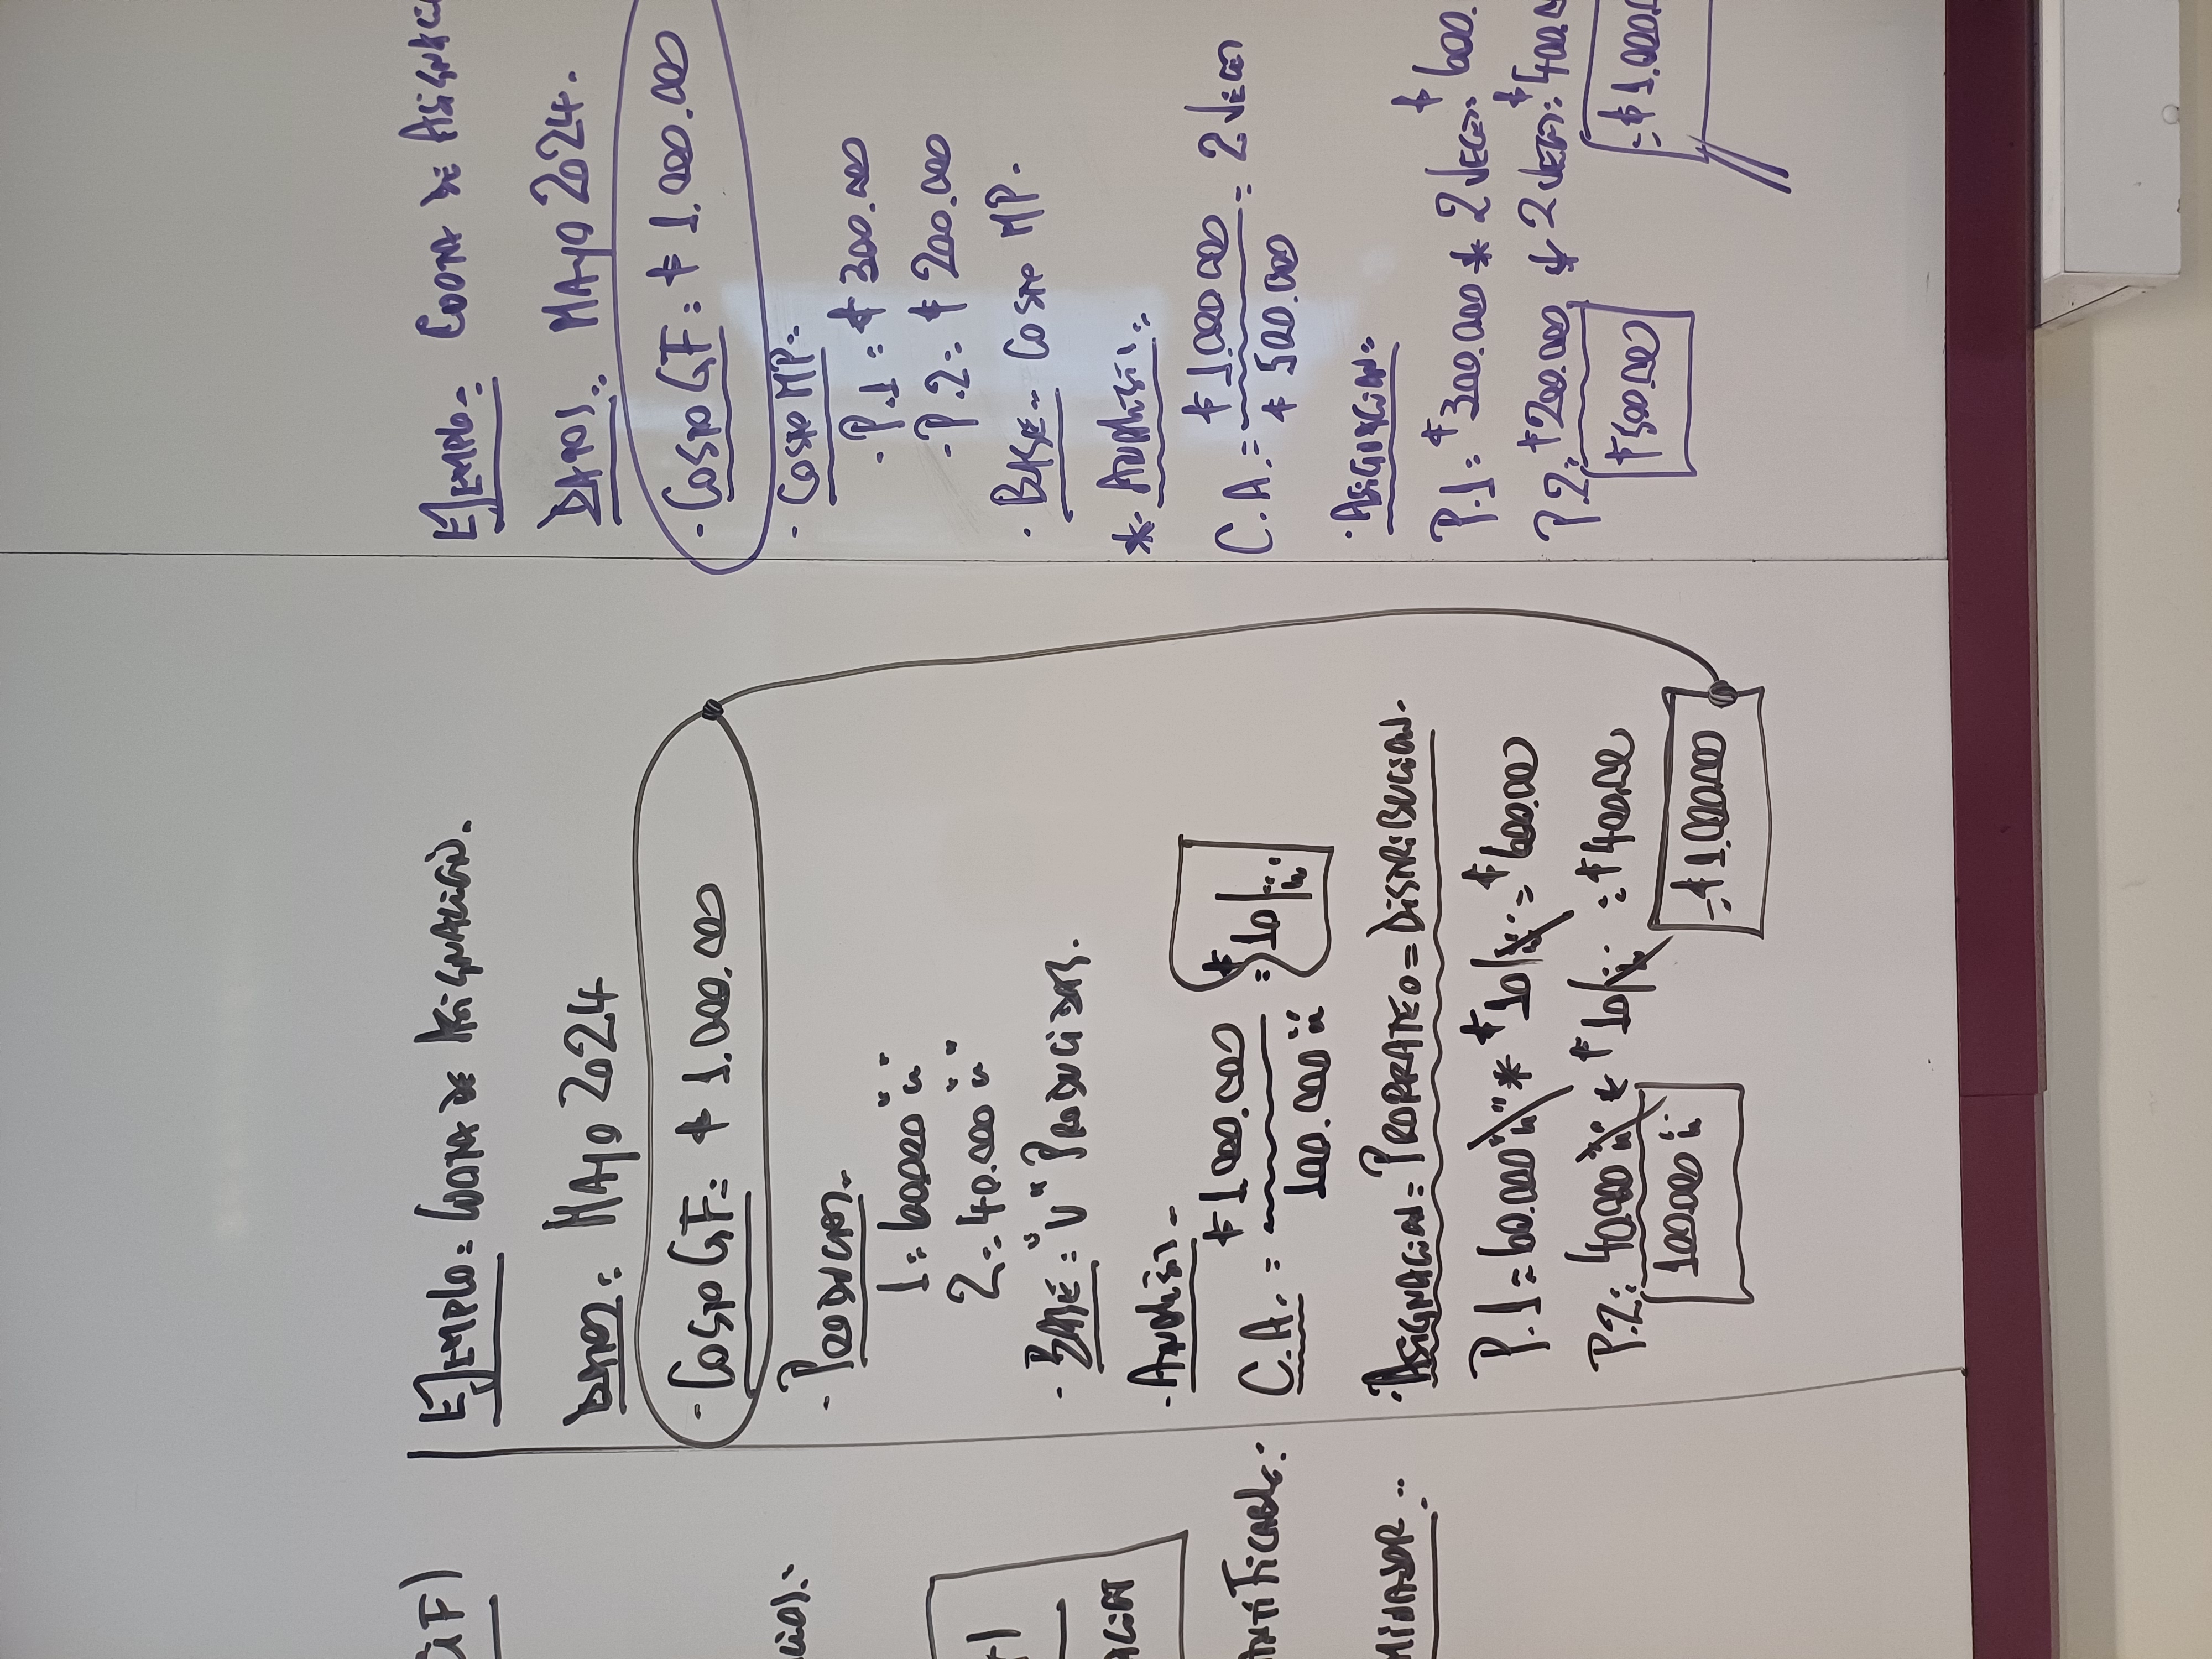 GF)
Ejemplo: Cuota de Asignación.
Datos: Mayo 2024
- Costo GF: $ 1.000.000
- Productos.
1: 60.000 "u"
2: 40.000 "u"
- Base: "U" Producidas.
- Análisis.
C.A. = $ 1.000.000 / 100.000 "u" = $10/"u"
- Asignación = Prorrateo = Distribución.
P.1 = 60.000 "u" * $10/"u" = $600.000
P.2: 40.000 "u" * $10/"u" = $400.000
100.000 "u"
= $1.000.000
Ejemplo: Cuota de Asignaci
Datos: Mayo 2024.
- Costo GF: $ 1.000.000
- Costo MP:
- P.1: $ 300.000
- P.2: $ 200.000
- Base: Costo MP.
* Análisis:
C.A. = $ 1.000.000 / $ 500.000 = 2 Veces
- Asignación:
P.1: $300.000 * 2 Veces: $600.
P.2: $200.000 * 2 Veces: $400.0
$500.000
= $1.000.0